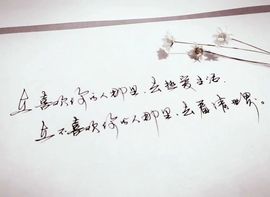 在喜欢你的人那里，去热爱生活，
在不喜欢你的人那里，去看清世界。